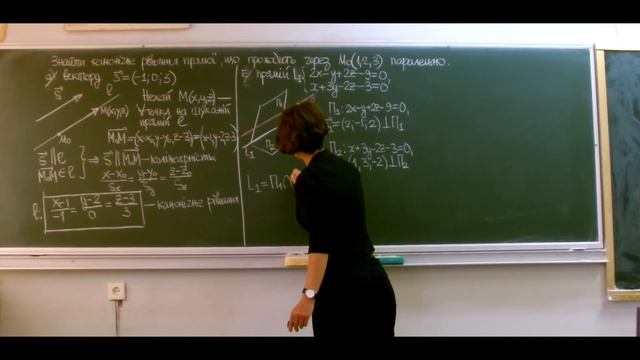 Знайти канонічне рівняння прямої, що проходить через M₀(1,2,3) паралельно.
а) вектору s⃗=(-1;0;3)
s⃗
l
M₀
M(x,y,z)
Нехай M(x,y,z) —
∀ точка на шуканій
прямій l
M₀M=(x-x₀,y-y₀,z-z₀)=(x-1,y-2,z-3)
s⃗ || l
M₀M ∈ l
⇒ s⃗ || M₀M - колінеарність
(x-x₀)/Sx = (y-y₀)/Sy = (z-z₀)/Sz
l: (x-1)/-1 = (y-2)/0 = (z-3)/3 — канонічне рівняння
прямій L₁ {2x-y+2z-9=0,
x+3y-2z-3=0
П₁
П₂
L₁
П₁: 2x-y+2z-9=0,
=(2;-1;2)⊥П₁
П₂: x+3y-2z-3=0,
3,-2)⊥П₂
L₁=П₁∩